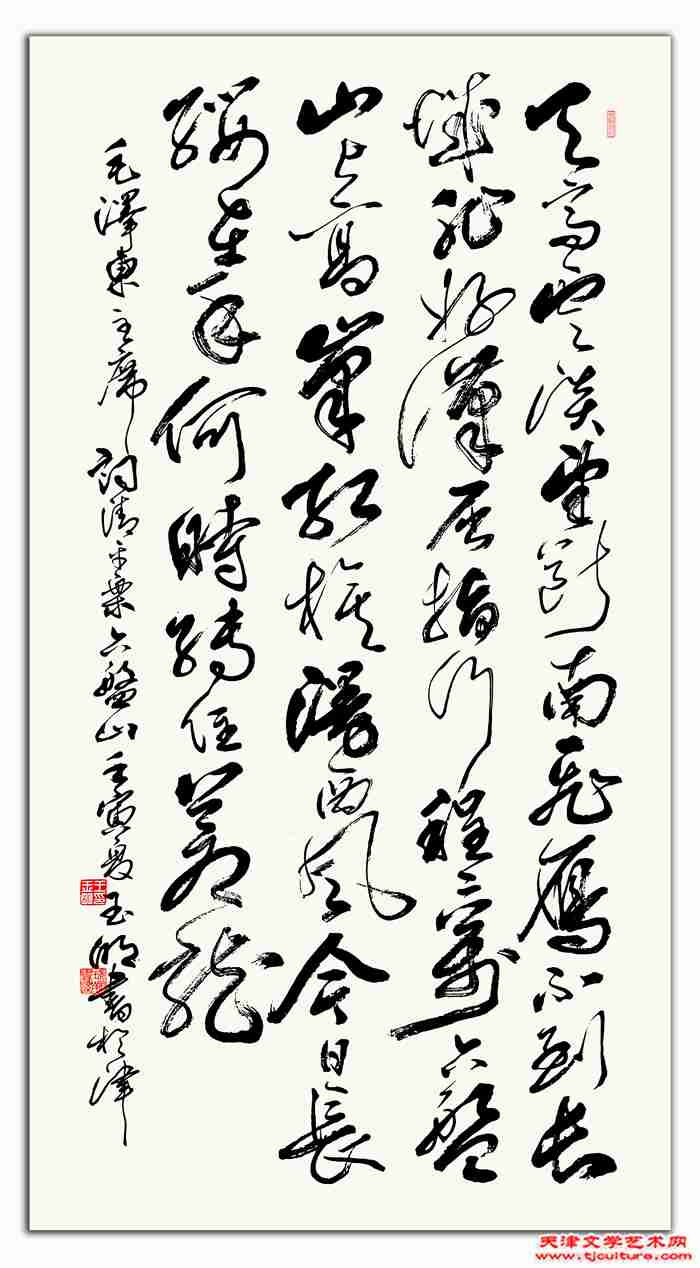 天高雲淡望斷南飛鴈不到長
城非好漢屈指行程二萬六盤
山上高峯紅旗漫西風今日長
纓在手何時縛住蒼龍
毛澤東主席詞清平樂六盤山壬寅夏玉明書於津
天津文学艺术网
www.tjculture.com